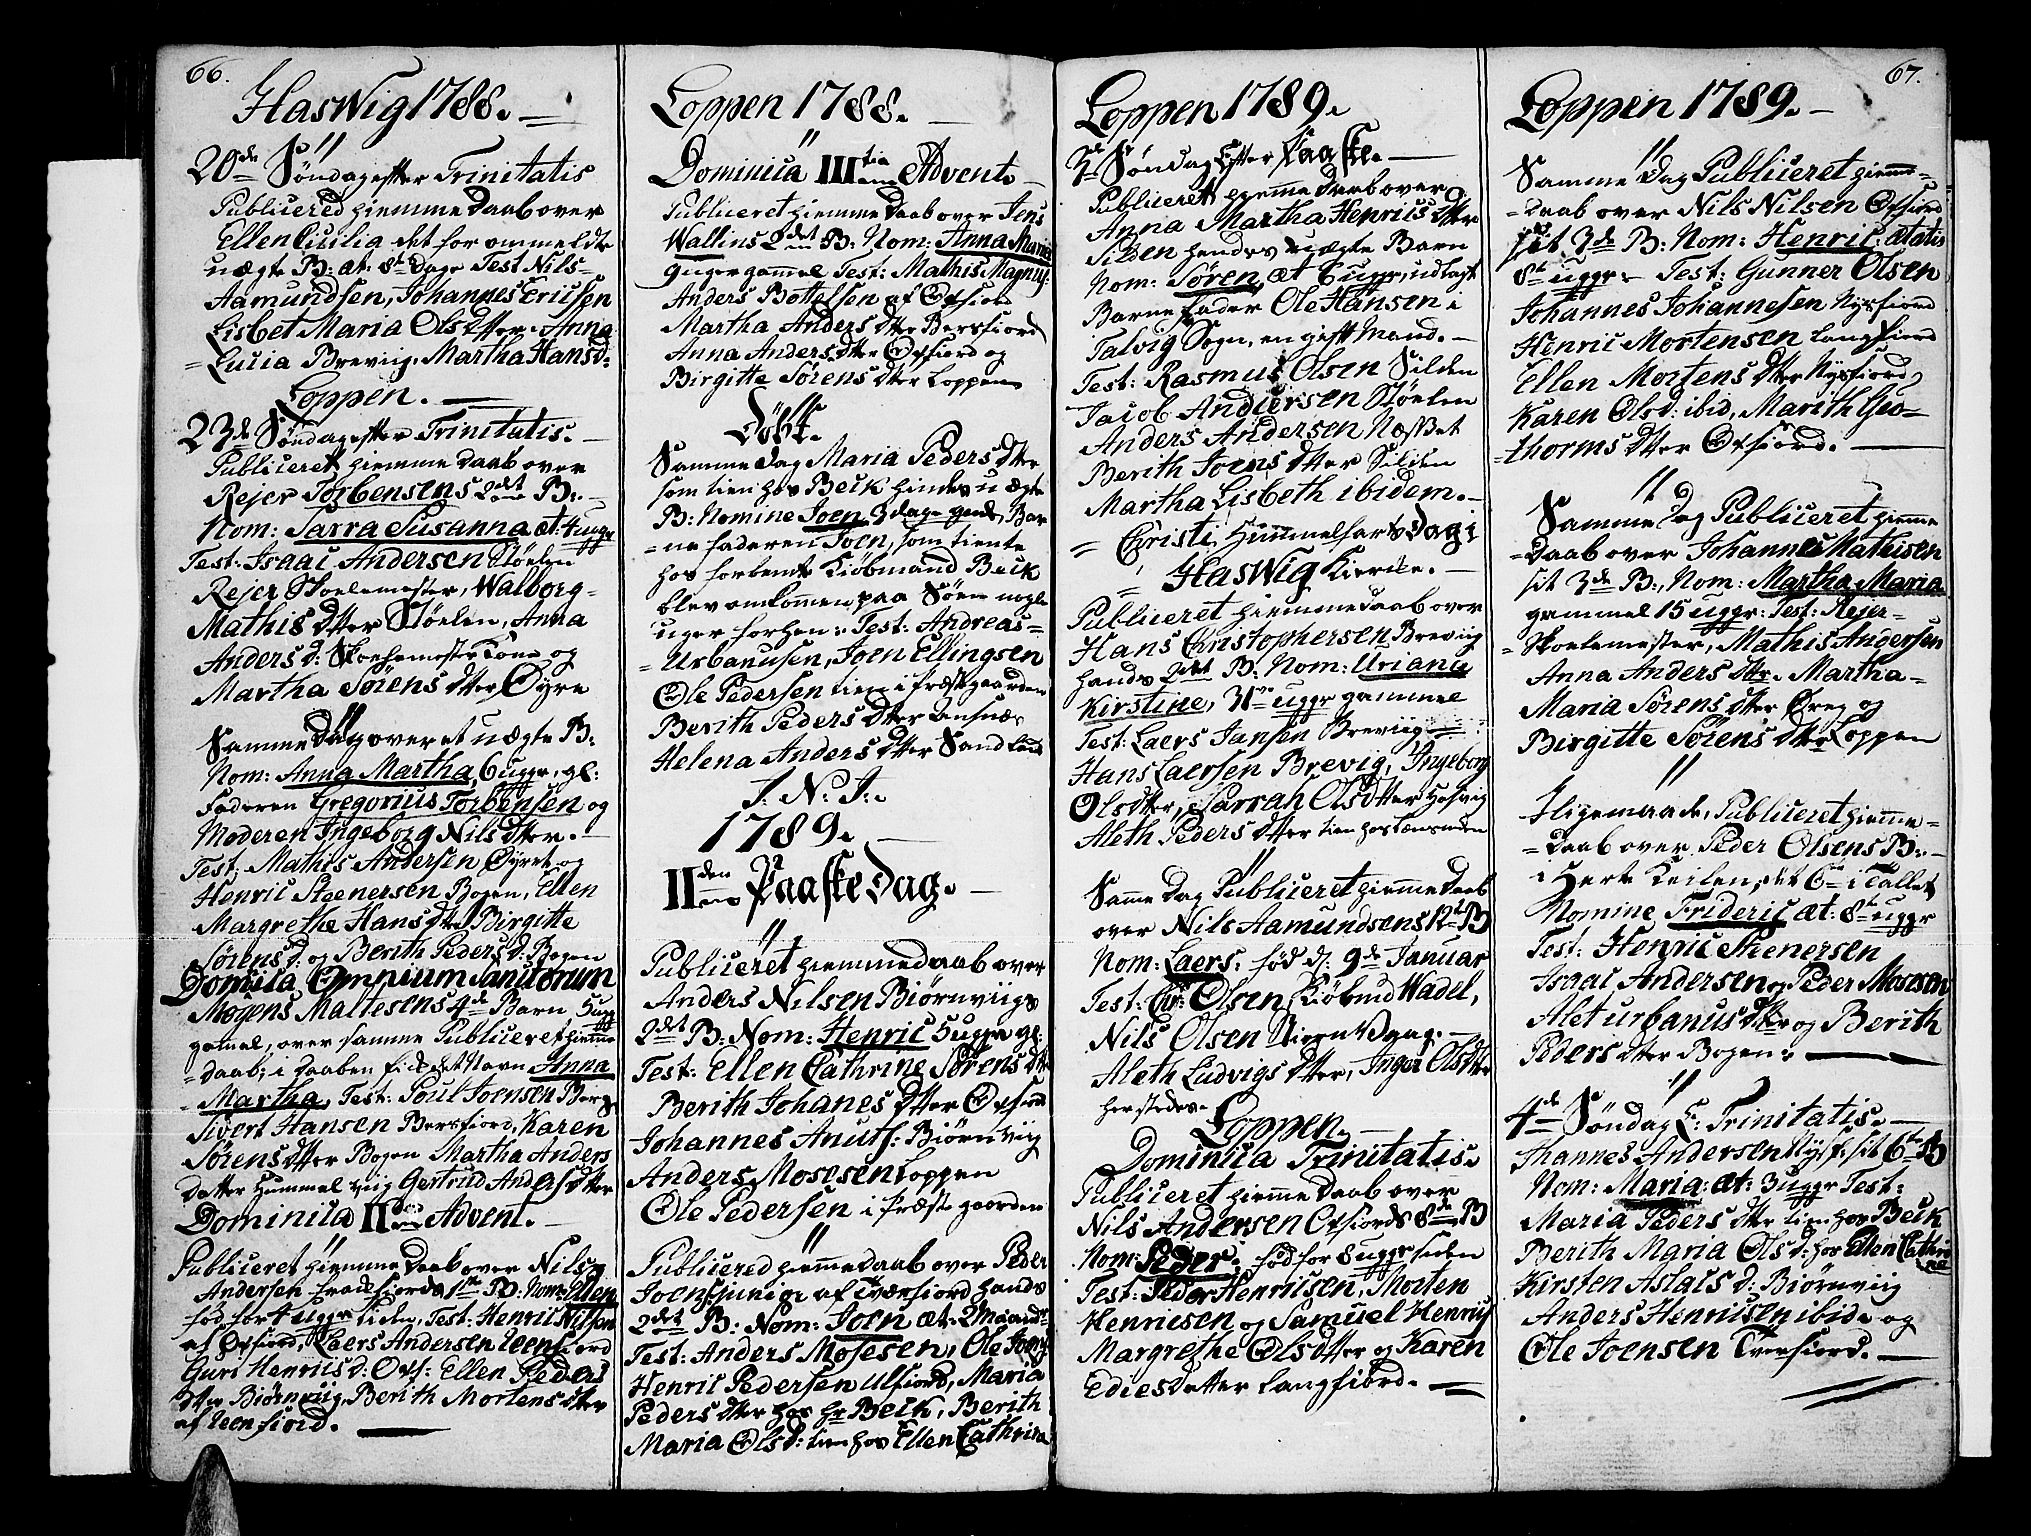 66.
Haswig 1788.
20de Søndag efter Trinitatis
Publicered hiemme Daab over
Ellen Cicilia det for ommeldte
uægte B: æt: 8te Dage Test Nils
Aamundsen, Johannes Ericssen
Lisbet Maria Olsdtter. Anna
Lucia Breviig. Martha Hansd:
Loppen.
23de Søndag efter Trinitatis.
Publiceret hiemme Daab over
Rejer Torbensens 2det B:
Nom: Sarra Susanna æt: 4 ugr
Test: Isaac Andersen Støelen
Rejer Skoelemester, Walborg
Mathis dtter Støelen, Anna
Anders d: Skoelemester Kone og
Martha Sørens dtter Øyre
"
Samme Dag over et uægte B:
Nom: Anna Martha, 6 uggr, gl:
Faderen Gregorius Torbensen og
Moderen Ingeborg Nils dtter.
Test: Mathis Andersen Øyret og
Henric Steenersen Bogen, Ellen
Margrethe Hans dtter Birgitte
Sørens d: og Berith Peders d: Bogen
Domica Omnium Sanctorum
Mogens Maltesens 4de Barn 5 ugg
gamel, over samme Publiceret hiemme
Daab; i Daaben fik det Navn Anna
Martha, Test: Poul Joensen Berg
Sivert Hansen Bersfiord, Karen
Sørens dtter Bogen Martha Anders
datter Hummelviig Gertrud Anders dtter
Dominica II Advent.
"
Publiceret hiemme Daab over Nils
Andersen 1ste B. Nom: Ellen
fød for 4 uggr siden, Test: Henric Nilsen
af Oxfiord, Laers Andersen Leensfiord
Guri Henrics d: Oxf: Ellen Peders
dtter Biørnviig Berith Mortens dtter
af Leenfiord.
Loppen 1788.
"
Dominica III tia Advent
Publiceret hiemme Daab over Jens
Wallins 2det B: Nom: Anna Maria
9 uger gammel Test: Mathis Magny:
Anders Bottelsen af Oxfiord
Martha Anders dtter Bersfiord
Anna Anders dtter Oxfiord og
Birgitte Sørens dtter Loppen
Døbt.
Samme dag Maria Peders dtter
som tien hos Beck hindes uægte
B: Nomine Joen 3 dage gml, Bar
ne faderen Joen, som tiente
hos forbemte Kiøbmand Beck
blev omkommen paa Søen nogle
uger forhen: Test: Andreas
Urbanussen, Joen Ellingsen
Ole Pedersen tien i Præstgaarden
Berith Peders dtter Ansnæs
Helena Anders dtter Sandland
J. N. J.
1789.
II den Paaske Dag.
"
Publiceret hiemme Daab over
Anders Nilsen Biørnviigs
2det B: Nom: Henric 5 uggr gl:
Test: Ellen Cathrine Sørens dtt
Berith Johanes dtter Oxfiord
Johannes Anuts: Biørnviig
Anders Mosesen Loppen
Ole Pedersen i Præste gaarden
"
Publicered hiemme Daab over Peder
Joensen junior af Tværfiord hands
2det B: Nom: Joen æt: 2 Maander
Test: Anders Mosesen, Ole Joens
Henric Pedersen Ulfiord, Maria
Peders dtter hos hr Beck, Berith
Maria Ols d: tien hos Ellen Cathrina
Loppen 1789.
2den Søndag Efter Paaske.
Publiceret hiemme Daab over
Anna Martha Henrics dtter
Silden hendes uægte Barn
Nom: Søren, æt 6 uggr, udlagt
Barne fader Ole Hansen i
Talvig Sogn, en gift Mand.
Test: Rasmus Olsen Silden
Jacob Andiersen Støelen
Anders Andersen Næsset
Berith Joens dtter Silden
Martha Lisbeth ibidem.
Christi Himmelfarts Dag i
Haswig Kiercke.
Publiceret hiemme Daab over
Hans Christophersen Breviig
hands 2det B: Nom: Uriane
Kirstine, 31 uggr gammel
Test: Laers Jansen Breviig
Hans Laersen Brevig, Ingeborg
Olsdtter, Sarrah Olsdtter Hasvig
Aleth Peders dtter tien hos Lensmden
"
Samme Dag Publiceret hiemme Daab
over Nils Aamundsens 12te B
Nom: Laers. fød d: 9de Januar
Test: Chr: Olsen, Kiøbmd Wadel,
Nils Olsen Stiern Vaag.
Aleth Ludvigs dtter, Inger Olsdtter
her stedes.
Loppen.
Dominica Trinitatis.
Publiceret hiemme Daab over
Nils Andersen Oxfiords 8de B
Nom: Peder. fød for 8 uggr siden
Test: Peder Henricsen, Morten
Henricsen og Samuel Henrics
Margrethe Olsdtter og Karen
Edies datter Langfiord.
67.
Loppen 1789.
"
Samme Dag Publiceret hiemme
Daab over Nils Nilsen Oxfiord
sit 3de B: Nom: Henric: ætatis
8te uggr. Test: Gunner Olsen
Johannes Johannesen Nysfiord
Henric Mortensen Langfiord
Ellen Mortens dtter Nysfiord
Karen Olsd: ibid, Marith Guo
thorms dtter Oxfiord.
"
Samme Dag Publiceret hiemme
Daab over Johannes Mathisen
sit 3de B:, Nom: Martha Maria
gammel 15 uggr: Test: Rejer
Skoelemester, Mathis Andersen
Anna Anders dtter. Martha
Maria Sørens dtter Øreg og
Birgitte Sørens dtter Loppen
"
Ligemaade, Publiceret hiemme
Daab over Peder Olsens B:
i Keilen, det 6te i Tallet
Nomine Frideric æt: 8te uggr
Test: Henric Stenersen
Isaac Andersen og Peder Mosesen
Alet Urbanus dtter og Berith
Peders dtter Bogen.
"
4de Søndag E: Trinitatis.
Johannes Andersen Nysf: sit 6te B
Nom: Maria: æt: 3 uggr Test:
Maria Peders dtter tien hos Beck
Berith Maria Ols d: hos Ellen Cathri
na
Kirsten Aslacs d: Biørnviig
Anders Henricsen ibid. og
Ole Joensen Tverfiord.